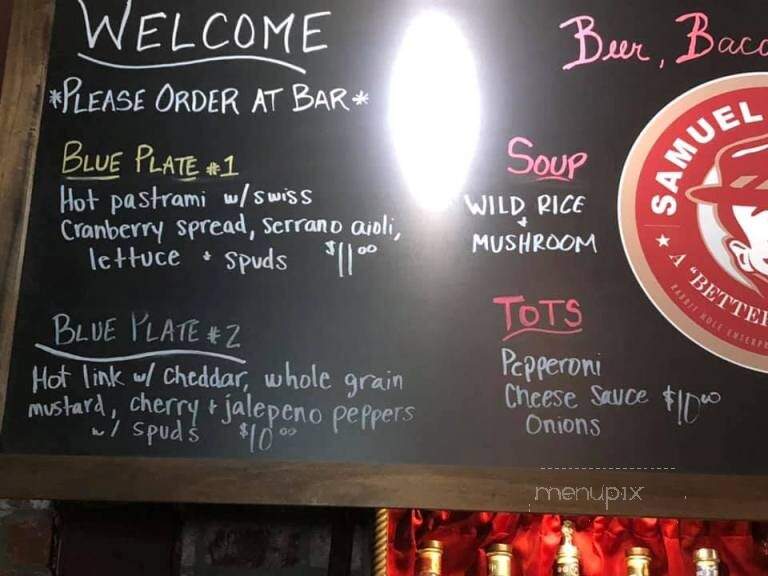 WELCOME
*PLEASE ORDER AT BAR*
BLUE PLATE #1
Hot pastrami w/ swiss
Cranberry spread, serrano aioli,
lettuce + spuds $11.00
BLUE PLATE #2
Hot link w/ cheddar, whole grain
mustard, cherry + jalepeno peppers
w/ spuds $10.00
Beer, Baco
SOUP
WILD RICE
+
MUSHROOM
TOTS
Pepperoni
Cheese Sauce $10.00
Onions
SAMUEL
★ A "BETTER
RABBIT HOLE ENTERPR
menupix